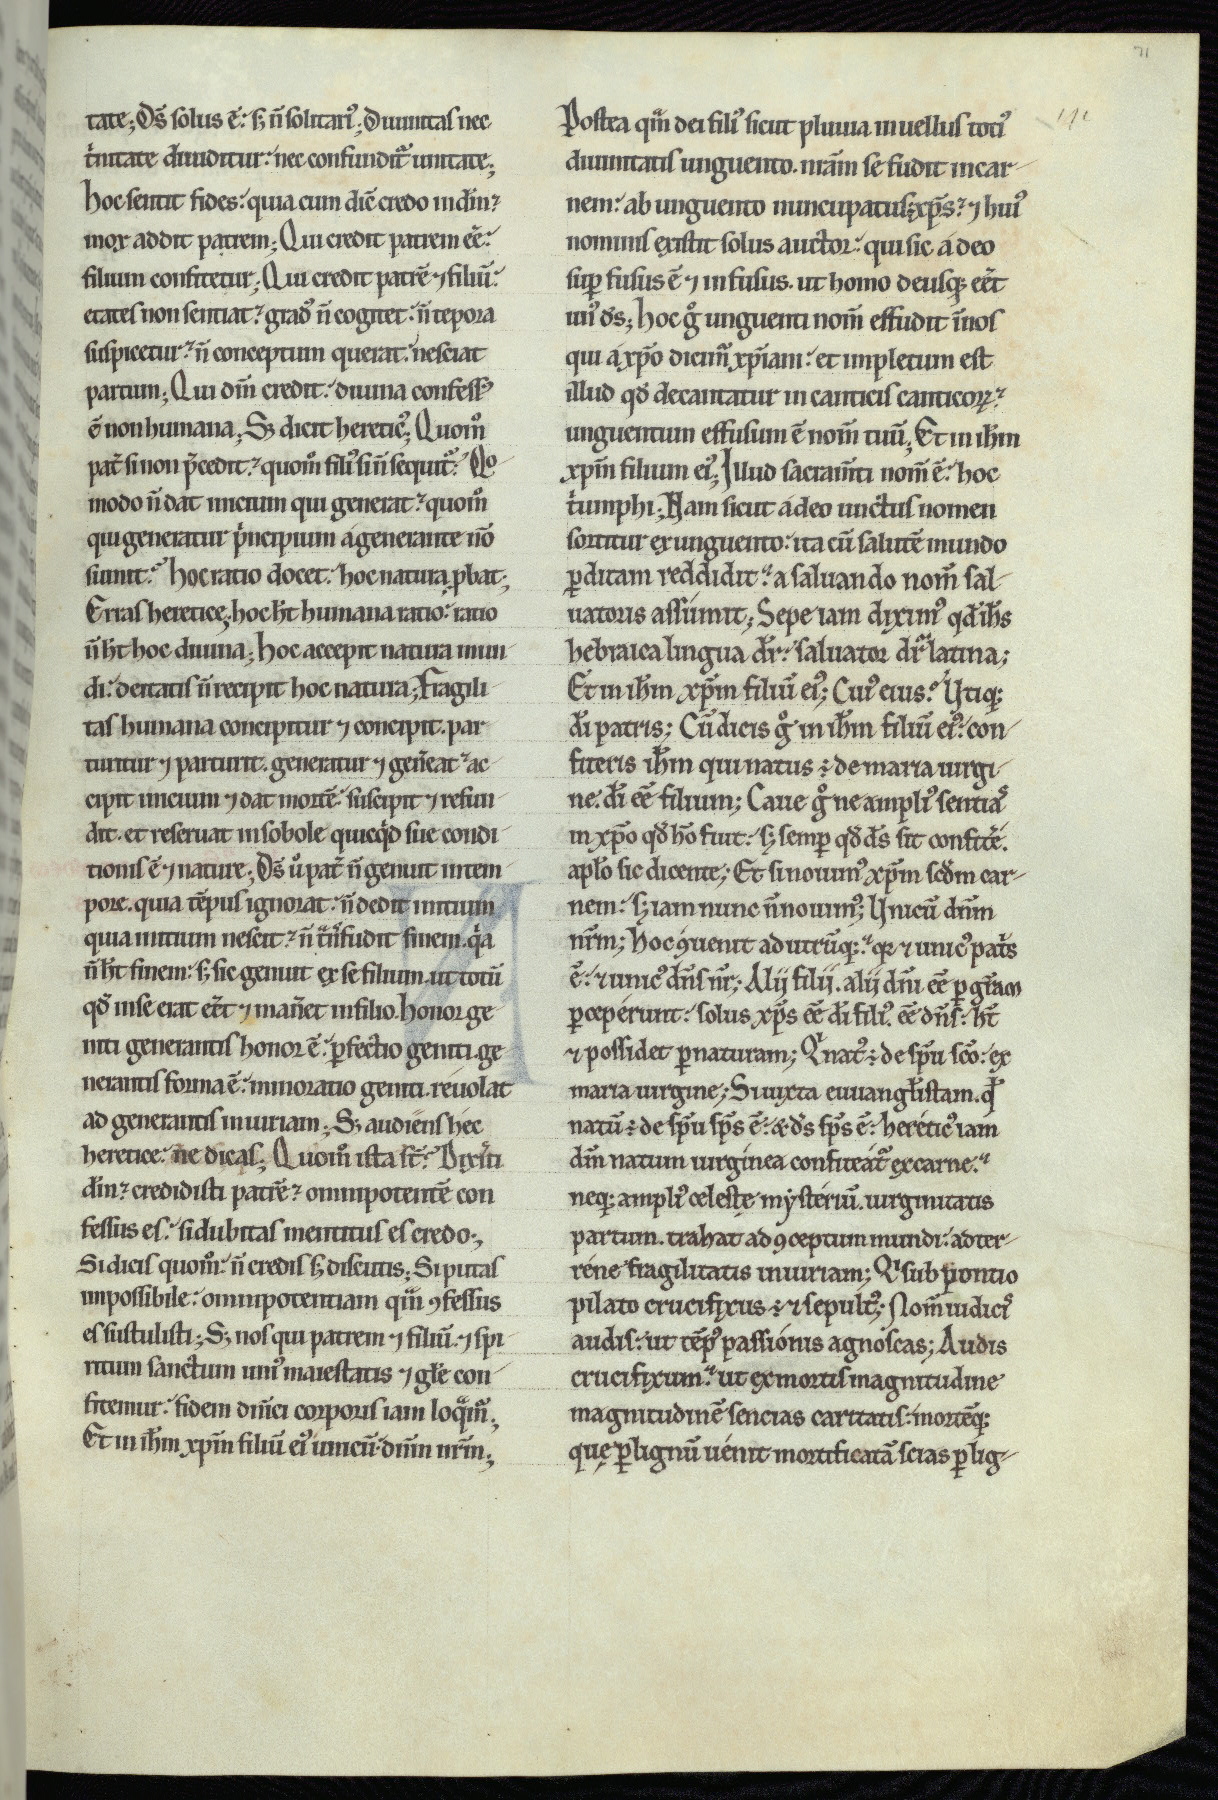 71
tate; Ds̄ solus ē: s; n̄ solitariꝰ; Diuinitas nec
t̍nitate diuiditur: nec confundit᷑ unitate;
Hoc sentit fides: quia cum diē credo in dm̄?
mox addit patrem; Qui credit patrem eē:
filium confitetur; Qui credit patrē ⁊ filiū:
etates non sentiat? gradꝰ n̄ cogitet: n̄ tēpora
suspicetur? n̄ conceptum querat: nesciat
partum; Qui dm̄ credit: diuina confess̄
ē non humana; S; dicit hereticꝰ; Quom̊
pat̄ si non p̄cedit? quom̊ filiꝰ si n̄ sequit᷑? Q̊o
modo n̄ dat inicium qui generat? quom̊
qui generatur p̍ncipium a generante nō
sumit? Hoc ratio docet: hoc natura ꝓbat;
Erras heretice; hoc ht̄ humana ratio: ratio
n̄ ht̄ hoc diuina; Hoc accepit natura mun
di: deitatis n̄ recipit hoc natura; Fragili
tas humana concipitur ⁊ concipit. par
turitur ⁊ parturit. generatur ⁊ gen̄eat? ac
cipit inicium ⁊ dat mortē: suscipit ⁊ refun
dit. et reseruat in sobole quicq̍d sue condi
tionis ē ⁊ nature; Ds̄ ů pat̄ n̄ genuit in tem
pore. quia tēpus ignorat: n̄ dedit initium
quia initium nescit? n̄ tn̄sfudit finem. q̍a
n̄ ht̄ finem: s; sic genuit ex se filium. ut totū
qd̄ in se erat eēt ⁊ man̄et in filio. Honor ge
niti generantis honor ē: ꝑfectio geniti. ge
nerantis forma ē: minoratio geniti. reuolat
ad generantis iniuriam; S; audiens hec
heretice: ne dicas; Quom̊ ista st̄? Dixisti
dm̄? credidisti patrē? omnipotentē con
fessus es: si dubitas mentitus es credo;
Si dicis quom̊: n̄ credis s; discutis; Si putas
impossibile: omnipotentiam quā ꝯfessus
es sustulisti; S; nos qui patrem ⁊ filiū. ⁊ spi
ritum sanctum uniꝰ maiestatis ⁊ glē con
fitemur: fidem dn̄ici corporis iam loq̄mur;
Et in ihm̄ xpm̄ filiū eiꝰ unicū dn̄m nr̄m;
Postea qm̄ dei filiꝰ sicut pluuia in uellus totiꝰ
diuinitatis unguento. nr̄am se fudit in car-
nem: ab unguento nuncupatus ÷ xp̄s? ⁊ huiꝰ
nominis existit solus auctor: qui sic a deo
suꝑ fusus ē ⁊ infusus. ut homo deusq; eēt
unꝰ ds̄; Hoc g̊ unguenti nom̄ effudit in nos
qui a xp̄o dicim᷑ xp̄iani: et impletum est
illud qd̄ decantatur in canticis canticoꝝ?
unguentum effusum ē nom̄ tuū; Et in ihm̄
xpm̄ filium eiꝰ; Illud sacram̄ti nom̄ ē: hoc
t̍umphi; Nam sicut a deo unctus nomen
sortitur ex unguento: ita cū salutē mundo
ꝑditam reddidit: a saluando nom̄ sal-
uatoris assumit; Sepe iam diximꝰ qd̄ ihs̄
hebraica lingua dr̄: saluator dr̄ latina;
Et in ihm̄ xpm̄ filiū eiꝰ; Cuiꝰ eius? Utiq;
di̅ patris; Cū dicis g̊ in ihm̄ filiū eiꝰ: con-
fiteris ihm̄ qui natus ÷ de maria uirgi-
ne. di̅ eē filium; Caue g̊ ne ampliꝰ sentias
in xp̄o qd̄ hō fuit: s; semꝑ qd̄ ds̄ sit confitēe.
aplo̅ sic dicente; Et si nouimꝰ xpm̄ scd̄m car-
nem: s; iam nunc n̄ nouimꝰ; Unicū dn̄m
nr̄m; Hoc ꝯuenit ad utrūq;: q; ⁊ unicꝰ pat̍s
ē: ⁊ unicꝰ dn̄s nr̄; Alij filij. alij dn̄i eē ꝑ gr̄am
ꝑceperunt: solus xp̄s eē di̅ filiꝰ. eē dn̄s: ht̄
⁊ possidet ꝑ naturam; Q᷑ natꝰ ÷ de spu̅ sco̅: ex
maria uirgine; Si iuxta euuanglistam. qd̄
natū ÷ de spu̅ sp̄s ē: & ds̄ sp̄s ē: hereticꝰ iam
dm̄ natum uirginea confiteat᷑ ex carne:
neq; ampliꝰ celeste mysteriū. uirginitatis
partum. trahat ad ꝯceptum mundi: ad ter-
rene fragilitatis iniuriam; Q᷑ sub pontio
pilato crucifixus ÷ ⁊ sepultꝰ; Nom̄ iudicis
audis: ut tēpꝰ passionis agnoscas; Audis
crucifixum: ut ex mortis magnitudine
magnitudinē sencias caritatis: mortēq;
quę ꝑ lignū uenit mortificatā scias ꝑ lig-